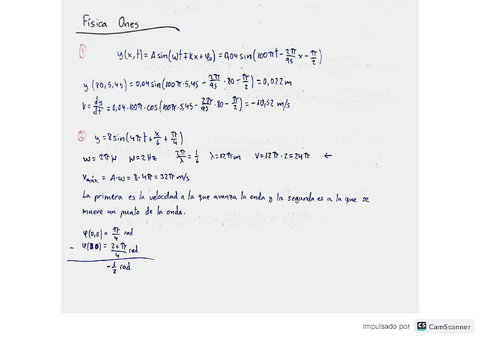 Física Ones
① y(x,t) = A sin(ωt ∓ kx + φ₀) = 0,04 sin(100πt - 2π/95 x - π/2)
y(80, 5,45) = 0,04 sin(100π · 5,45 - 2π/95 · 80 - π/2) = 0,022 m
V = dy/dt = 0,04 · 100π · cos(100π · 5,45 - 2π/95 · 80 - π/2) = -10,52 m/s
② y = 8 sin(4πt + x/6 + π/4)
ω = 2πν ν = 2Hz 2π/λ = 1/6 λ = 12π m V = 12π · 2 = 24π ←
Vmáx. = A · ω = 8 · 4π = 32π m/s
La primera es la velocidad a la que avanza la onda y la segunda es a la que se
mueve un punto de la onda.
φ(0,0) = π/4 rad
rad
rad
Impulsado por CS CamScanner